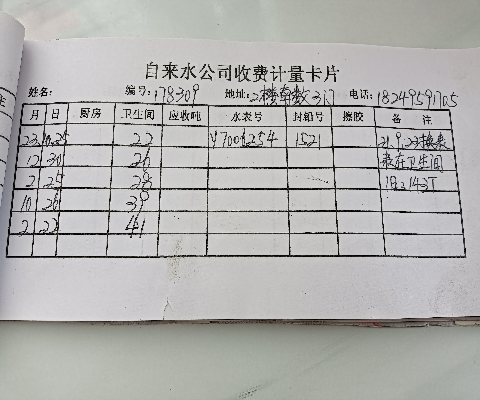 自来水公司收费计量卡片
姓名: 编号:178309 地址:2楼东数3门 电话:18249591705
月 日 厨房 卫生间 应收吨 水表号 封铅号 擦胶 备注
23 10.25 22 47006254 1521 21.9.23换表
12 30 26 表在卫生间
2 25 28 旧:2143T
10 26 39
2 22 41